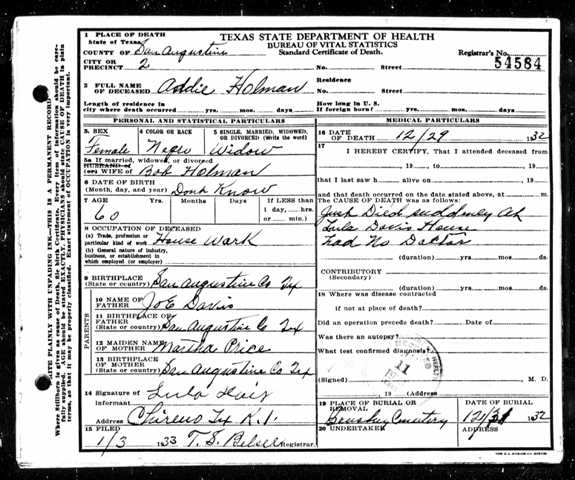 1 PLACE OF DEATH
State of Texas
COUNTY OF San Augustine
CITY OR PRECINCT 2
TEXAS STATE DEPARTMENT OF HEALTH
BUREAU OF VITAL STATISTICS
Standard Certificate of Death.
Registrar's No.
54584
No. Street
2 FULL NAME OF DECEASED Addie Holman
Residence
No. Street
Length of residence in city where death occurred yrs. mos. days
How long in U. S. if foreign born? yrs. mos. days
PERSONAL AND STATISTICAL PARTICULARS
3. SEX
Female
4 COLOR OR RACE
Negro
5 SINGLE, MARRIED, WIDOWED, OR DIVORCED (Write the word)
Widow
5a If married, widowed, or divorced
HUSBAND of
(or) WIFE of Bob Holman
6 DATE OF BIRTH
(Month, day, and year) Dont Know
7 AGE Years Months Days If LESS than
60
1 day, hrs.
or minutes
8 OCCUPATION OF DECEASED
(a) Trade, profession or particular kind of work House Work
(b) General nature of industry, business, or establishment in which employed (or employer)
9 BIRTHPLACE
(State or country) San Augustine Co Tex
PARENTS
10 NAME OF FATHER Joe Davis
11 BIRTHPLACE OF FATHER
(State or country) San Augustine Co Tex
12 MAIDEN NAME OF MOTHER Martha Price
13 BIRTHPLACE OF MOTHER
(State or country) San Augustine Co Tex
14 Signature of Informant Lula
Address Chireno Tex R.1.
15 FILED
1/3 1933 T. S. Registrar.
MEDICAL PARTICULARS
16 DATE OF DEATH 12/29 1932
17
I HEREBY CERTIFY, That I attended deceased from
, 19 , to , 19
that I last saw h alive on , 19
and that death occurred on the date stated above, at m.
The CAUSE OF DEATH was as follows:
Just Died suddenly At
Lula Davis House
had No Doctor
(duration) yrs. mos. ds.
CONTRIBUTORY
(Secondary)
(duration) yrs. mos. ds.
18 Where was disease contracted
if not at place of death?
Did an operation precede death? Date of
Was there an autopsy?
What test confirmed diagnosis?
(Signed) M. D.
, 19 (Address)
19 PLACE OF BURIAL OR REMOVAL
Cemetery
DATE OF BURIAL
1932
20 UNDERTAKER
ADDRESS
11